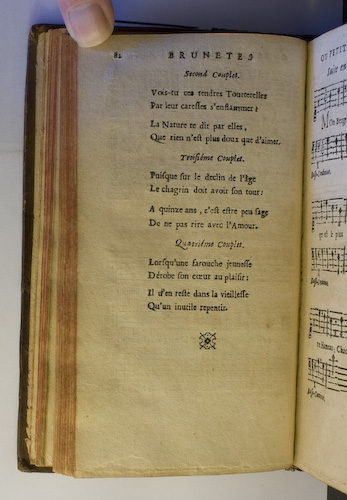 82 BRUNETES
Second Couplet.
Vois-tu ces tendres Tourterelles
Par leur caresses s'enflammer?
La Nature te dit par elles,
Que rien n'est plus doux que d'aimer.
Troisiéme Couplet.
Puisque sur le declin de l'âge
Le chagrin doit avoir son tour:
A quinze ans, c'est estre peu sage
De ne pas rire avec l'Amour.
Quatriéme Couplet.
Lorsqu'une farouche jeunesse
Dérobe son cœur au plaisir:
Il n'en reste dans la vieillesse
Qu'un inutile repentir.
OU PETIT
Suite en